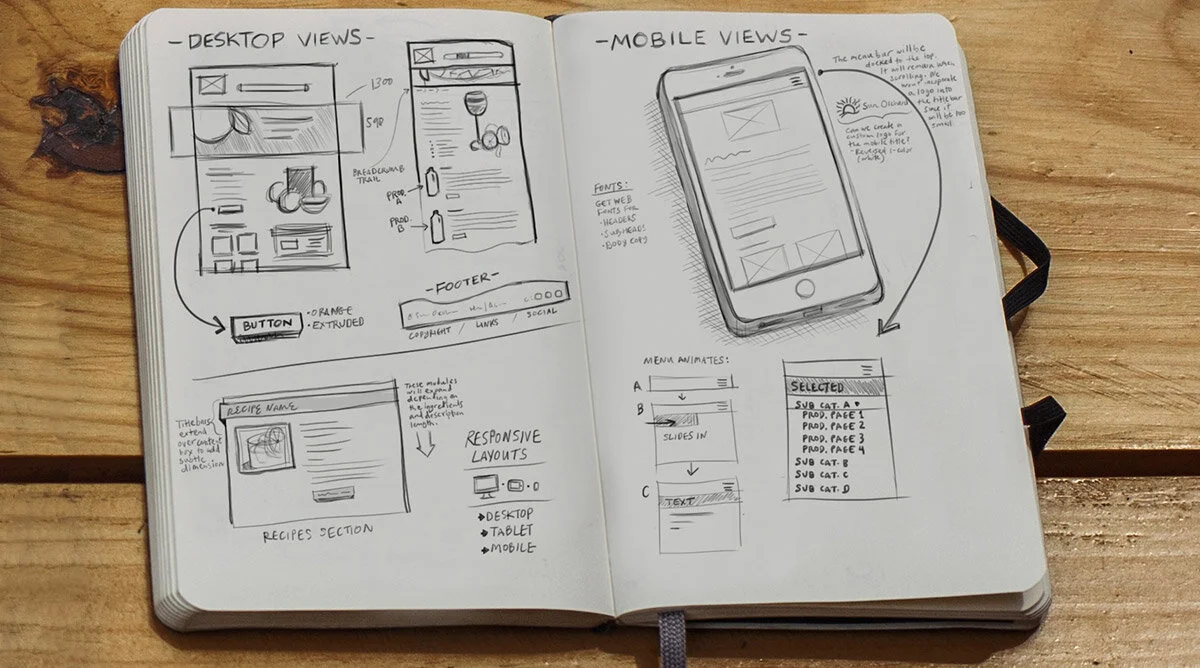 -DESKTOP VIEWS-
1300
590
BREADCRUMB
TRAIL
PROD.
A
PROD.
B
BUTTON
•ORANGE
•EXTRUDED
-FOOTER-
COPYRIGHT / LINKS / SOCIAL
RECIPE NAME
Titlebars
extend
over content
box to add
subtle
dimension
These modules
will expand
depending on
the ingredients
and description
length.
RECIPES SECTION
RESPONSIVE
LAYOUTS
DESKTOP
TABLET
MOBILE
-MOBILE VIEWS-
The menu bar will be
docked to the top.
It will remain when
scrolling. We
won't incorporate
a logo into
the title bar
since it
will be too
small
Sun Orchard
Can we create a
custom logo for
the mobile title?
-Reversed 1-color
(white)
FONTS:
GET WEB
FONTS FOR
-HEADERS
-SUBHEADS
-BODY COPY
MENU ANIMATES:
A
B
SLIDES IN
C
TEXT
SELECTED
SUB CAT. A
PROD. PAGE 1
PROD. PAGE 2
PROD. PAGE 3
PROD. PAGE 4
SUB CAT. B
SUB CAT. C
SUB CAT. D